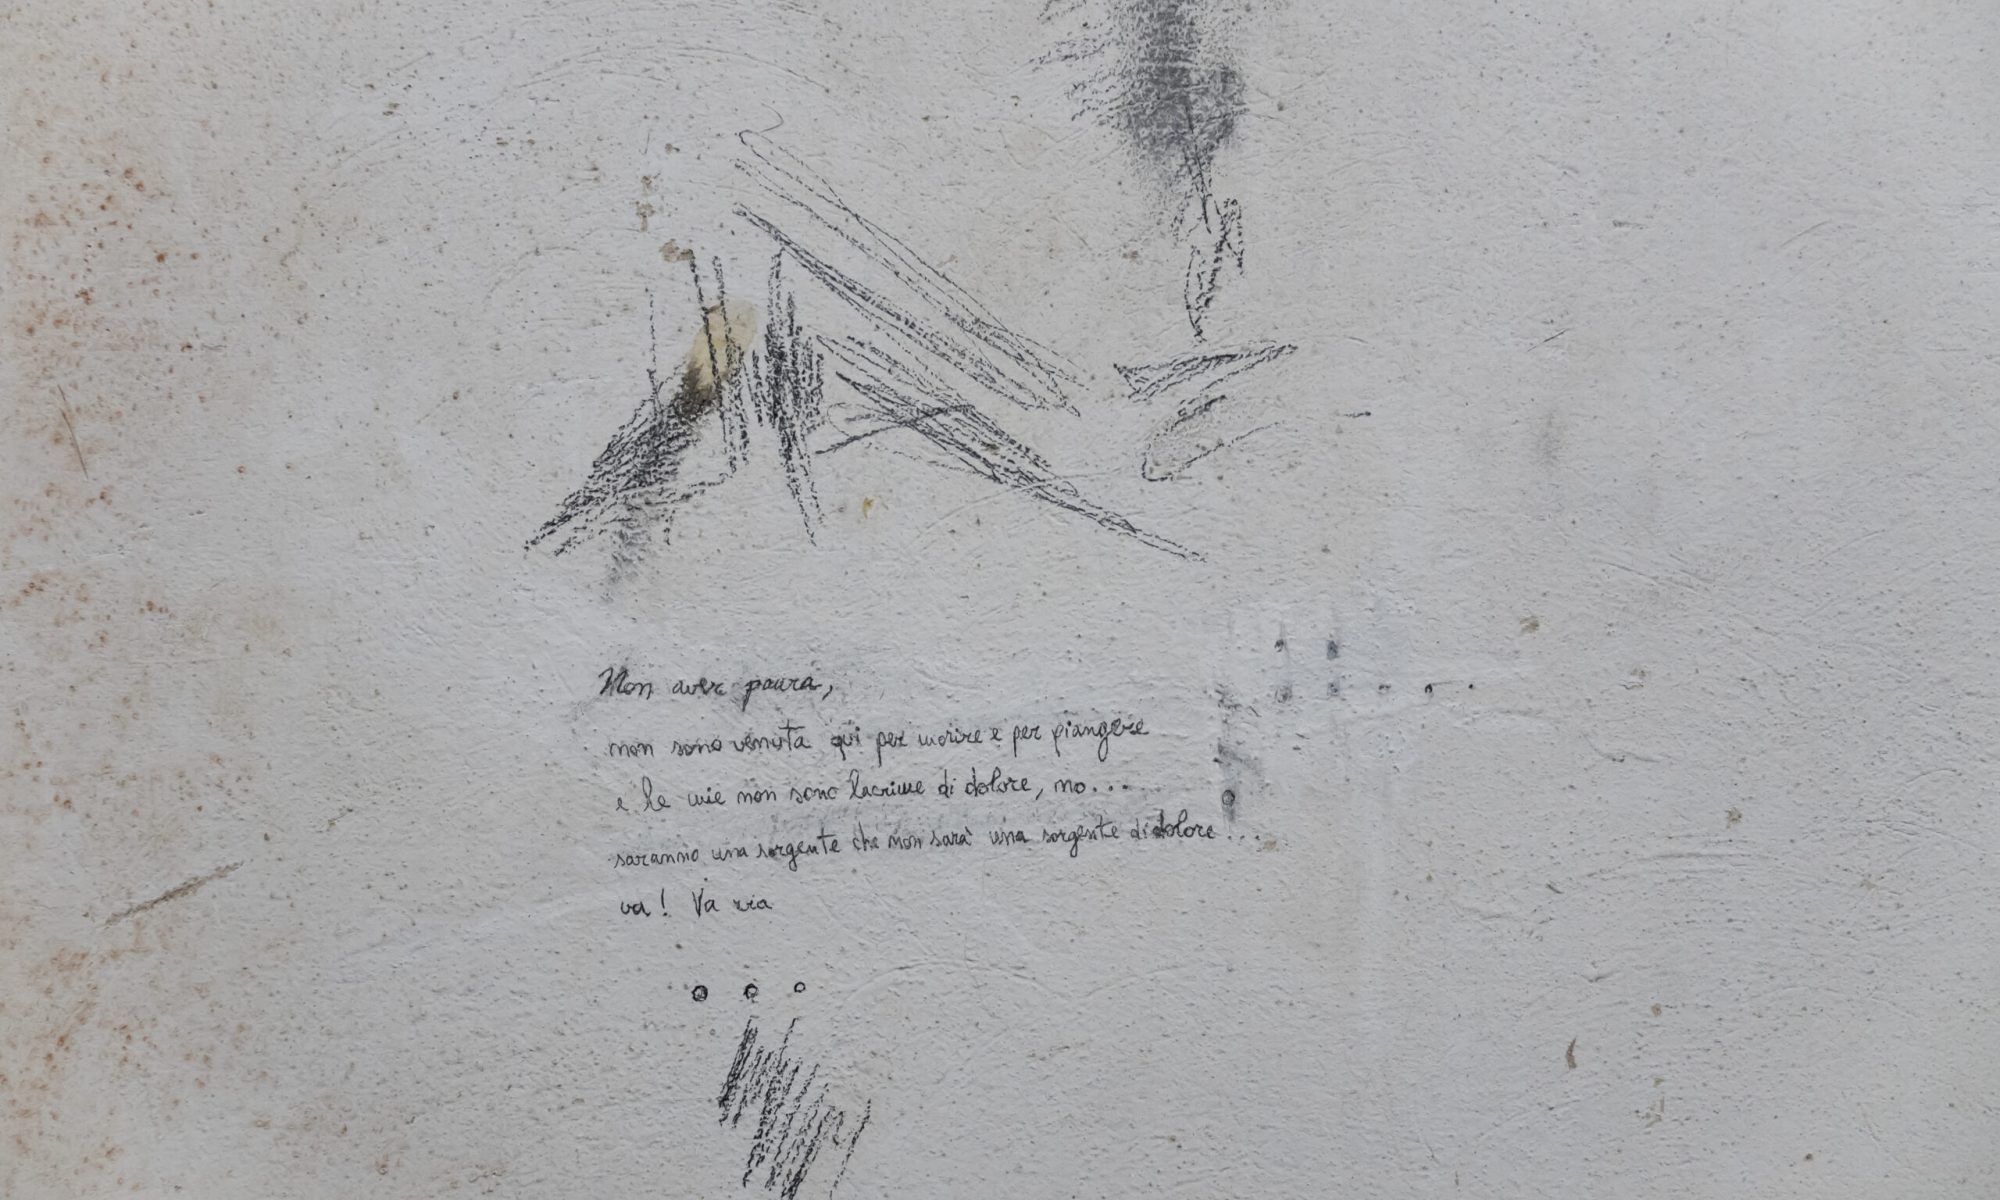 Non aver paura,
non sono venuta qui per morire e per piangere
e le mie non sono lacrime di dolore, no...
saranno una sorgente che non sarà una sorgente di dolore...
va! Va via